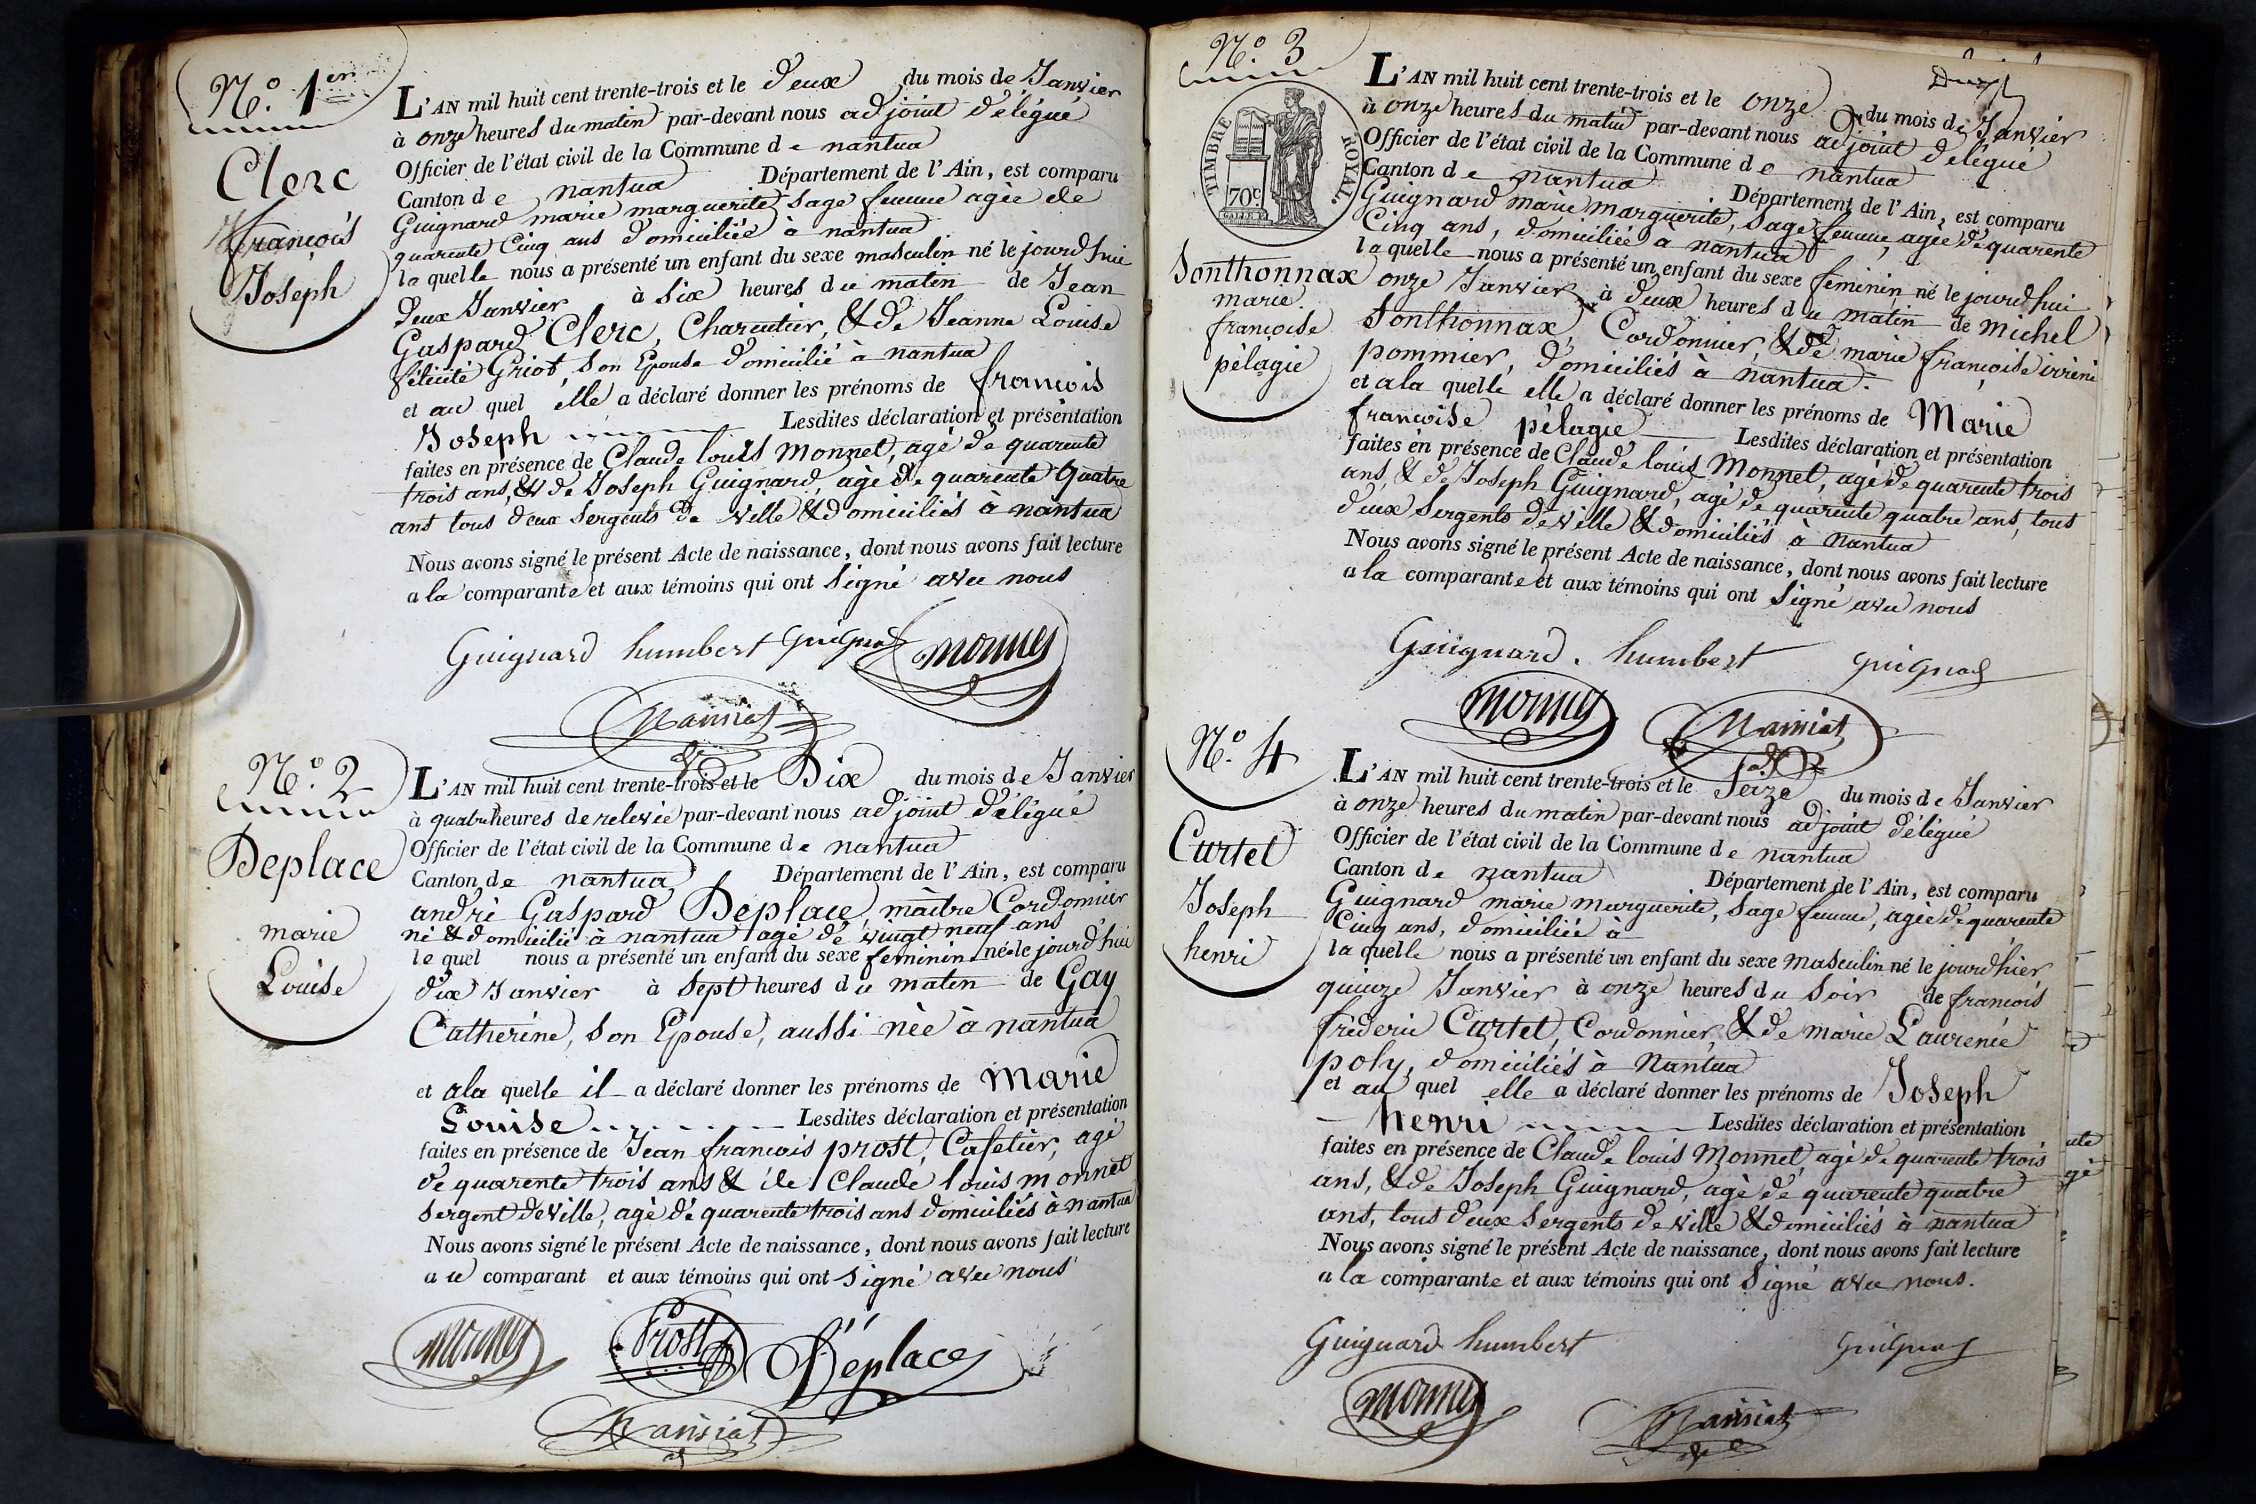 N.º 1er
Clerc
françois
Joseph
L'AN mil huit cent trente-trois et le deux du mois de Janvier
à onze heures du matin par-devant nous adjoint délégué
Officier de l'état civil de la Commune de nantua
Canton de nantua Département de l'Ain, est comparu
Guignard marie marguerite, sage femme agée de
quarente Cinq ans domiciliée à nantua
la quelle nous a présenté un enfant du sexe masculin né le jourd'hui
deux Janvier à six heures du matin de Jean
Gaspard Clerc, Charcutier, & de Jeanne Louise
félicité Griot, son Epouse domicilié à nantua
et au quel elle a déclaré donner les prénoms de françois
Joseph Lesdites déclaration et présentation
faites en présence de Claude louis Monnet, agé de quarente
trois ans, & de Joseph Guignard, agé de quarente quatre
ans tous deux sergents de ville & domiciliés à nantua
Nous avons signé le présent Acte de naissance, dont nous avons fait lecture
a la comparante et aux témoins qui ont signé avec nous
Guignard humbert guignard monnet
N.º 2
Deplace
marie
Louise
L'AN mil huit cent trente-trois et le Dix du mois de Janvier
à quatre heures de relevée par-devant nous adjoint délégué
Officier de l'état civil de la Commune de nantua
Canton de nantua Département de l'Ain, est comparu
andré Gaspard Deplace, maître Cordonnier
né & domicilié à nantua agé de vingt neuf ans
le quel nous a présenté un enfant du sexe feminin né le jourd'hui
dix Janvier à sept heures du matin de Gay
Catherine, son Epouse, aussi née à nantua
et a la quelle il a déclaré donner les prénoms de Marie
Louise Lesdites déclaration et présentation
faites en présence de Jean françois prost, Cafetier, agé
de quarente trois ans & de Claude louis monnet
sergent de ville, agé de quarente trois ans domiciliés à nantua
Nous avons signé le présent Acte de naissance, dont nous avons fait lecture
au comparant et aux témoins qui ont signé avec nous
monnet Prost Déplace
N.º 3
TIMBRE ROYAL
70c.
Sonthonnax
marie
françoise
pélagie
L'AN mil huit cent trente-trois et le onze du mois de Janvier
à onze heures du matin par-devant nous adjoint délégué
Officier de l'état civil de la Commune de nantua
Canton de nantua Département de l'Ain, est comparu
Guignard marie marguerite, sage femme, agée de quarente
Cinq ans, domiciliée à nantua
la quelle nous a présenté un enfant du sexe feminin né le jourd'hui
onze Janvier à deux heures du matin de michel
Sonthonnax, Cordonnier, & de marie françoise irréné
pommier, domiciliés à nantua.
et a la quelle elle a déclaré donner les prénoms de Marie
françoise pélagie Lesdites déclaration et présentation
faites en présence de Claude louis Monnet, agé de quarente trois
ans, & de Joseph Guignard, agé de quarente quatre ans, tous
deux sergents de ville & domiciliés à nantua
Nous avons signé le présent Acte de naissance, dont nous avons fait lecture
a la comparante et aux témoins qui ont signé avec nous
Guignard. humbert guignard
monnet
N.º 4
Curtet
Joseph
henri
L'AN mil huit cent trente-trois et le seize du mois de Janvier
à onze heures du matin par-devant nous adjoint délégué
Officier de l'état civil de la Commune de nantua
Canton de nantua Département de l'Ain, est comparu
Guignard marie marguerite, sage femme, agée de quarente
Cinq ans, domiciliée à
la quelle nous a présenté un enfant du sexe masculin né le jourd'hier
quinze Janvier à onze heures du soir de françois
fréderic Curtet, Cordonnier, & de marie Laurence
poly, domiciliés à Nantua
et au quel elle a déclaré donner les prénoms de Joseph
henri Lesdites déclaration et présentation
faites en présence de Claude louis Monnet, agé de quarente trois
ans, & de Joseph Guignard, agé de quarente quatre
ans, tous deux sergents de ville & domiciliés à nantua
Nous avons signé le présent Acte de naissance, dont nous avons fait lecture
a la comparante et aux témoins qui ont signé avec nous.
Guignard humbert guignard
monnet